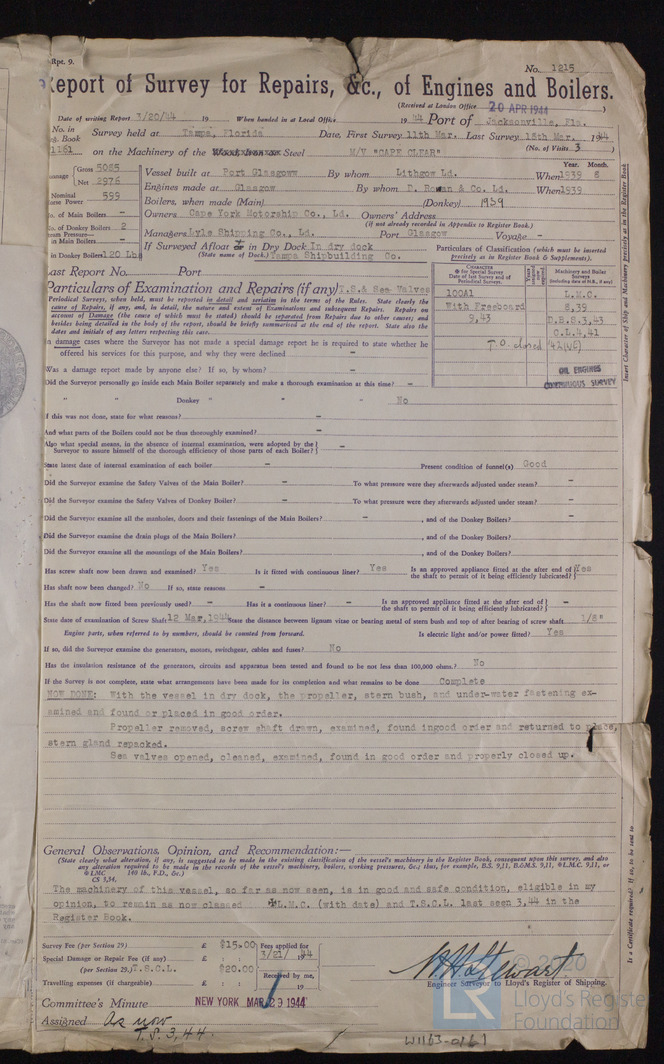 Rpt. 9.
No. 1215
Report of Survey for Repairs, &c., of Engines and Boilers.
(Received at London Office 20 APR 1944 )
Date of writing Report 3/20/44 19 When handed in at Local Office 19 44 Port of Jacksonville, Fla.
No. in Reg. Book Survey held at Tampa, Florida Date, First Survey 11th Mar. Last Survey 15th Mar. 1944
1161 on the Machinery of the Steel M/V "CAPE CLEAR" (No. of Visits 3 )
Tonnage Gross 5085
Net 2976
Vessel built at Port Glasgow By whom Lithgow Ld. When 1939 Year. Month. 8
Nominal Horse Power 599
Engines made at Glasgow By whom D. Rowan & Co. Ld. When 1939
Boilers, when made (Main) (Donkey) 1939
No. of Main Boilers -
Owners Cape York Motorship Co., Ld. Owners' Address
(if not already recorded in Appendix to Register Book.)
No. of Donkey Boilers 2
Managers Lyle Shipping Co., Ld. Port Glasgow Voyage -
Steam Pressure— in Main Boilers -
If Surveyed Afloat or in Dry Dock In dry dock
in Donkey Boilers 120 Lbs
(State name of Dock.) Tampa Shipbuilding Co.
Particulars of Classification (which must be inserted precisely as in Register Book & Supplements).
Last Report No. Port
Particulars of Examination and Repairs (if any) T.S.& Sea Valves
Periodical Surveys, when held, must be reported in detail and seriatim in the terms of the Rules. State clearly the
cause of Repairs, if any, and, in detail, the nature and extent of Examinations and subsequent Repairs. Repairs on
account of Damage (the cause of which must be stated) should be separated from Repairs due to other causes; and
besides being detailed in the body of the report, should be briefly summarised at the end of the report. State also the
dates and initials of any letters respecting this case.
CHARACTER
for Special Survey
Date of last Survey and of
Periodical Surveys.
Machinery and Boiler
Surveys
(including date of N.B., if any)
100A1 L.M.C.
With Freeboard 8,39
9,43 D.B.S.3,43
C.L.4,41
OIL ENGINES
CONTINUOUS SURVEY
Insert Character of Ship and Machinery precisely as in the Register Book
In damage cases where the Surveyor has not made a special damage report he is required to state whether he
offered his services for this purpose, and why they were declined -
Was a damage report made by anyone else? If so, by whom? -
Did the Surveyor personally go inside each Main Boiler separately and make a thorough examination at this time? -
" " Donkey " " " No
If this was not done, state for what reasons? -
And what parts of the Boilers could not be thus thoroughly examined? -
Also what special means, in the absence of internal examination, were adopted by the
Surveyor to assure himself of the thorough efficiency of those parts of each Boiler? -
State latest date of internal examination of each boiler - Present condition of funnel(s) Good
Did the Surveyor examine the Safety Valves of the Main Boiler? - To what pressure were they afterwards adjusted under steam? -
Did the Surveyor examine the Safety Valves of Donkey Boiler? - To what pressure were they afterwards adjusted under steam? -
Did the Surveyor examine all the manholes, doors and their fastenings of the Main Boilers? - , and of the Donkey Boilers? -
Did the Surveyor examine the drain plugs of the Main Boilers? , and of the Donkey Boilers? -
Did the Surveyor examine all the mountings of the Main Boilers? , and of the Donkey Boilers? -
Has screw shaft now been drawn and examined? Yes Is it fitted with continuous liner? Yes Is an approved appliance fitted at the after end of the shaft to permit of it being efficiently lubricated? Yes
Has shaft now been changed? No If so, state reasons -
Has the shaft now fitted been previously used? - Has it a continuous liner? - Is an approved appliance fitted at the after end of the shaft to permit of it being efficiently lubricated? -
State date of examination of Screw Shaft 12 Mar,1944 State the distance between lignum vitæ or bearing metal of stern bush and top of after bearing of screw shaft 1/8"
Engine parts, when referred to by numbers, should be counted from forward. Is electric light and/or power fitted? Yes
If so, did the Surveyor examine the generators, motors, switchgear, cables and fuses? No
Has the insulation resistance of the generators, circuits and apparatus been tested and found to be not less than 100,000 ohms.? No
If the Survey is not complete, state what arrangements have been made for its completion and what remains to be done Complete
NOW DONE: With the vessel in dry dock, the propeller, stern bush, and under-water fastening ex-
amined and found or placed in good order.
Propeller removed, screw shaft drawn, examined, found ingood order and returned to place,
stern gland repacked.
Sea valves opened, cleaned, examined, found in good order and properly closed up.
General Observations, Opinion, and Recommendation:—
(State clearly what alteration, if any, is suggested to be made in the existing classification of the vessel's machinery in the Register Book, consequent upon this survey, and also
any alteration required to be made in the records of the vessel's machinery, boilers, working pressures, &c.; thus, for example, B.S. 9,11, B.&M.S. 9,11, L.M.C. 9,11, or
LMC 140 lb., F.D., &c.)
CS 9,34,
The machinery of this vessel, so far as now seen, is in good and safe condition, eligible in my
opinion, to remain as now classed L.M.C. (with date) and T.S.C.L. last seen 3,44 in the
Register Book.
Is a Certificate required? If so, to be sent to
Survey Fee (per Section 29) £ $15.00 Fees applied for
Special Damage or Repair Fee (if any) £ : : 3/21/ 1944
(per Section 29.) T.S.C.L. $20.00 Received by me,
Travelling expenses (if chargeable) £ : : 19
Engineer Surveyor to Lloyd's Register of Shipping.
Committee's Minute NEW YORK MAR 29 1944
Assigned As now
T.S. 3,44.
© 2020
LR Lloyd's Register
Foundation
W1163-0161